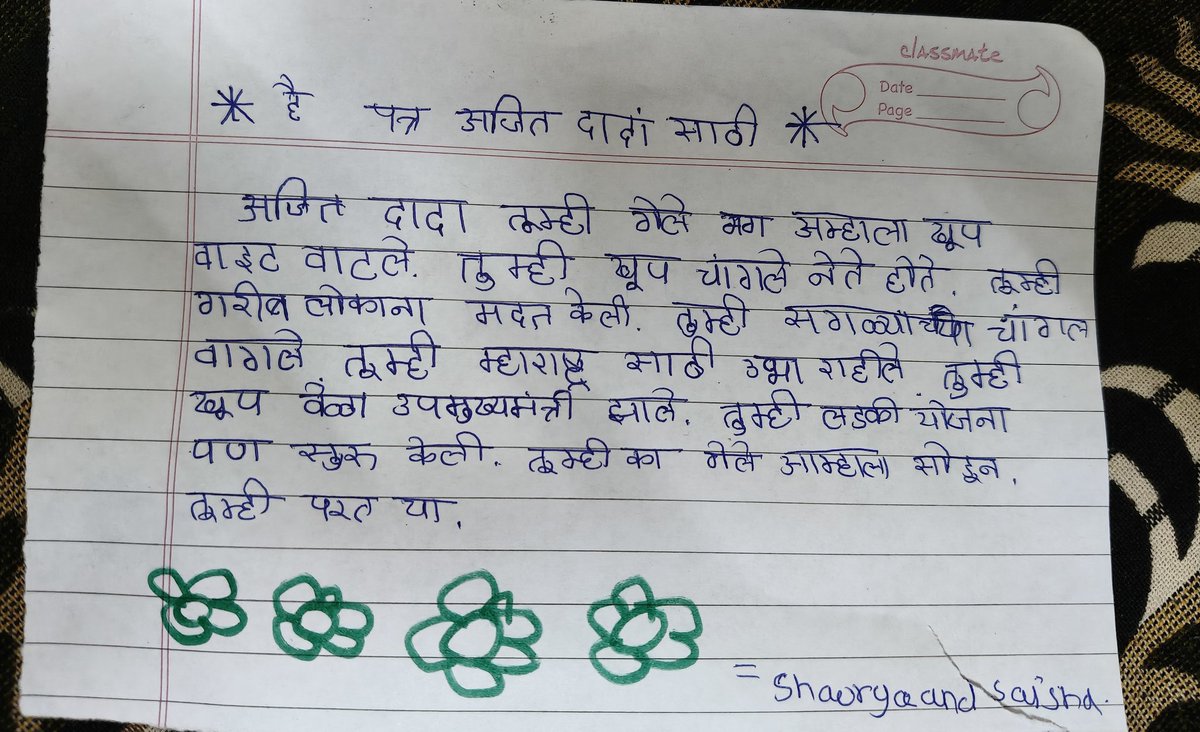 classmate
Date
Page
* है पत्र अजित दादां साठी *
अजित दादा तूम्ही गेले मग अम्हाला खूप
वाइट वाटले. तुम्ही खूप चांगले नेते होते. तूम्ही
गरीब लोकाना मदत केली. तुम्ही सगळ्याच्या चांगल
वागले तूम्ही म्हाराष्ट्र साठी उभा राहीले तुम्ही
खूप वेळा उपमुख्यमंत्री झाले. तुम्ही लडकी योजना
पण सुरु केली. तूम्ही का गेले आम्हाला सोडून.
तूम्ही परत या.
= Shaurya and Saisha.